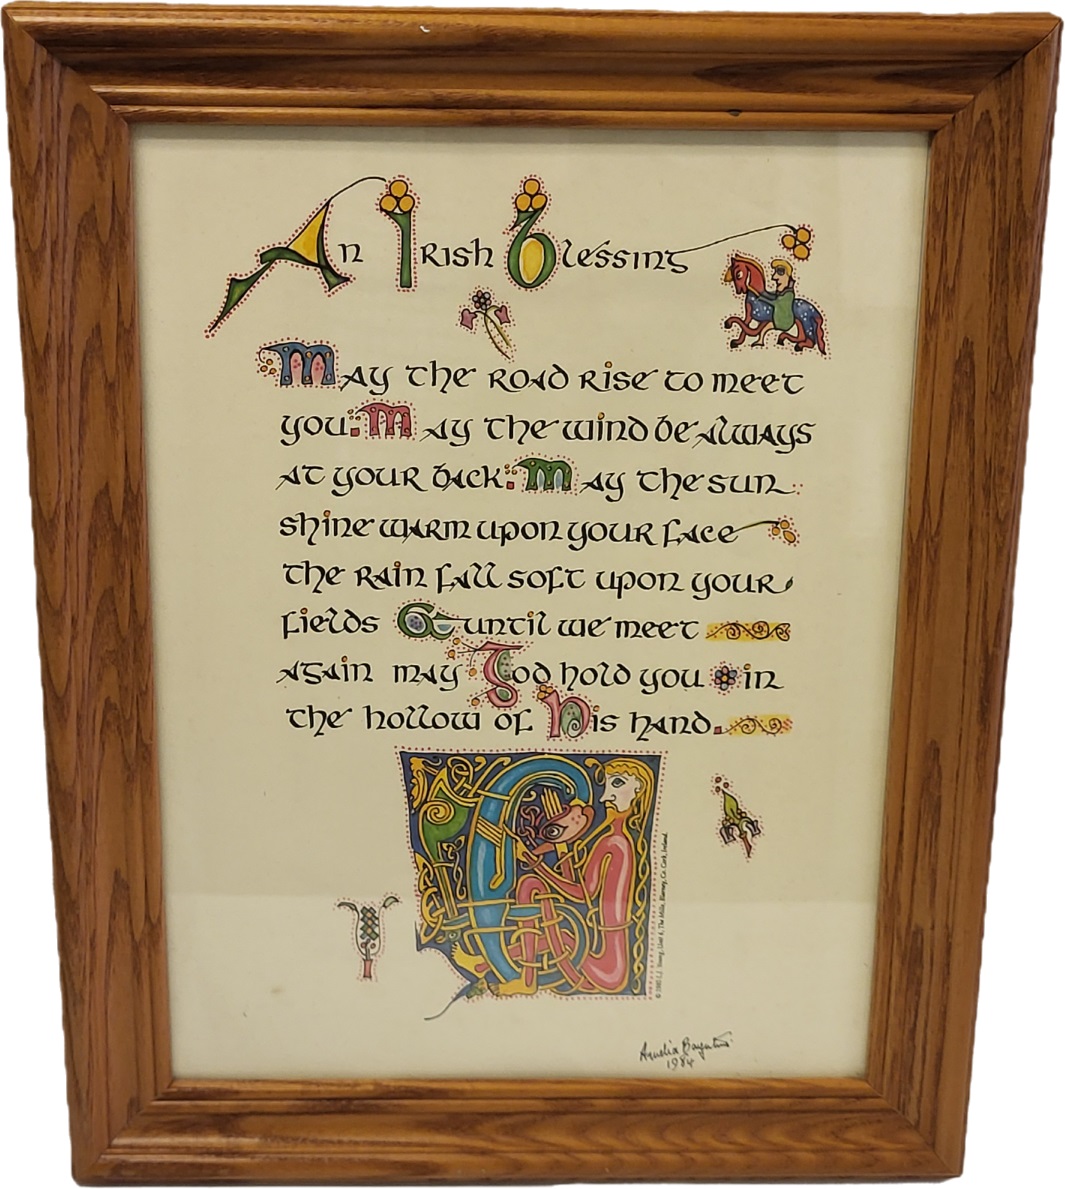 An Irish Blessing
May the road rise to meet
you. May the wind be always
at your back. May the sun
shine warm upon your face
the rain fall soft upon your
fields & until we meet
again may God hold you in
the hollow of His hand.
L.J. Young, Unit 4, The Mills, Blarney, Co. Cork, Ireland.
Amelia
1984